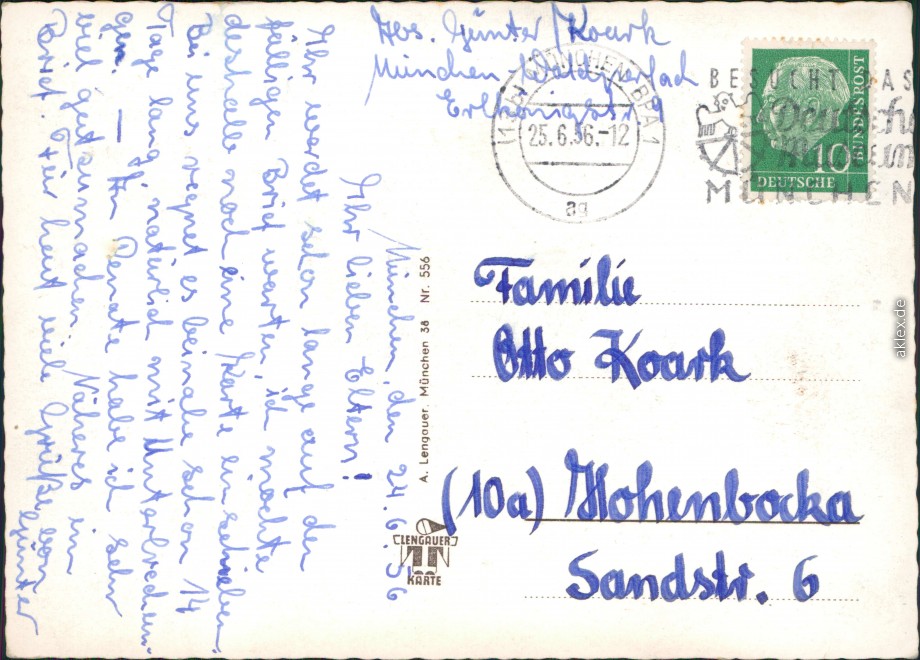 Abs. Günter Koark
München
Erlkönigstr. 1
(13b) MÜNCHEN BPA 1
25.6.56.-12
ag
BESUCHT DAS
Deutsche
Museum
MÜNCHEN
10
DEUTSCHE
BUNDESPOST
München, den 24.6.56
Ihr lieben Eltern!
Ihr werdet schon lange auf den
fälligen Brief warten, ich möchte
deshalb noch eine Karte einschieben.
Bei uns regnet es beinahe schon 14
Tage lang, natürlich mit Unterbrechun-
gen. — An Renate habe ich sehr
viel gutzumachen. Näheres im
Brief. Für heut viele Grüße von
Günter
A. Lengauer, München 38 Nr. 556
LENGAUER
KARTE
Familie
Otto Koark
(10a) Hohenbocka
Sandstr. 6
aklex.de